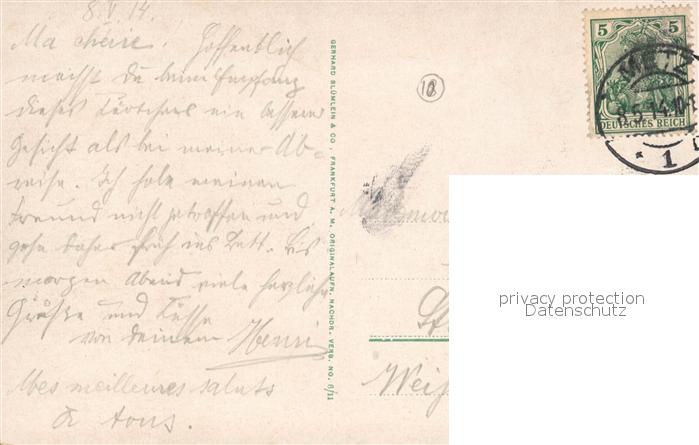 8. V. 14.
Ma chérie. Hoffentlich
machst du beim Empfang
dieses Kärtchens ein besseres
Gesicht als bei meiner Ab-
reise. Ich habe meinen
Freund nicht getroffen und
gehe daher früh ins Bett. Bis
morgen Abend viele herzliche
Grüße und Küsse
von deinem Henri
Mes meilleures saluts
à tous.
GERHARD BLÜMLEIN & CO., FRANKFURT A. M. ORIGINALAUFN. NACHDR. VERB. NO. 6/11
18
5 5
DEUTSCHES REICH
8.5.14.10-
* 1
privacy protection
Datenschutz